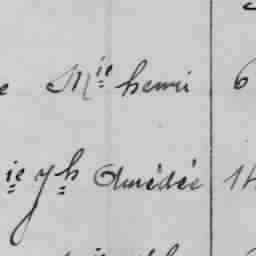 e Mie henri 6
ie Jh Amédée 14